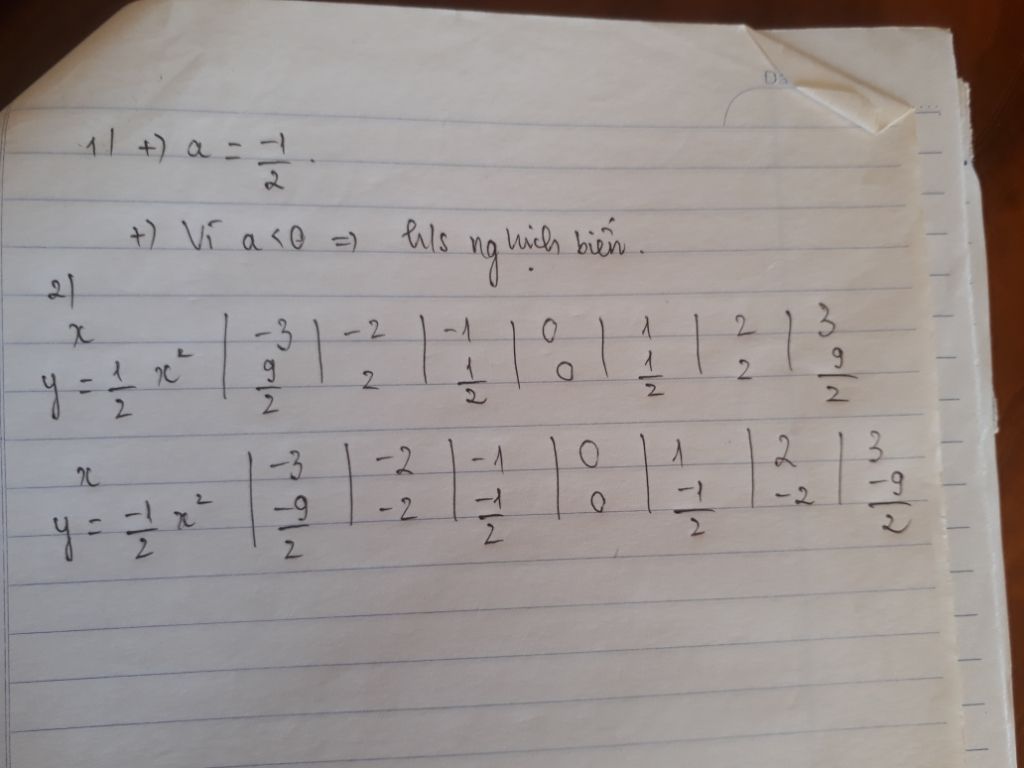 D3
1) +) a = -1/2.
+) Vì a < 0 => h/s nghịch biến.
2)
x | -3 | -2 | -1 | 0 | 1 | 2 | 3
y = 1/2 x² | 9/2 | 2 | 1/2 | 0 | 1/2 | 2 | 9/2
x | -3 | -2 | -1 | 0 | 1 | 2 | 3
y = -1/2 x² | -9/2 | -2 | -1/2 | 0 | -1/2 | -2 | -9/2